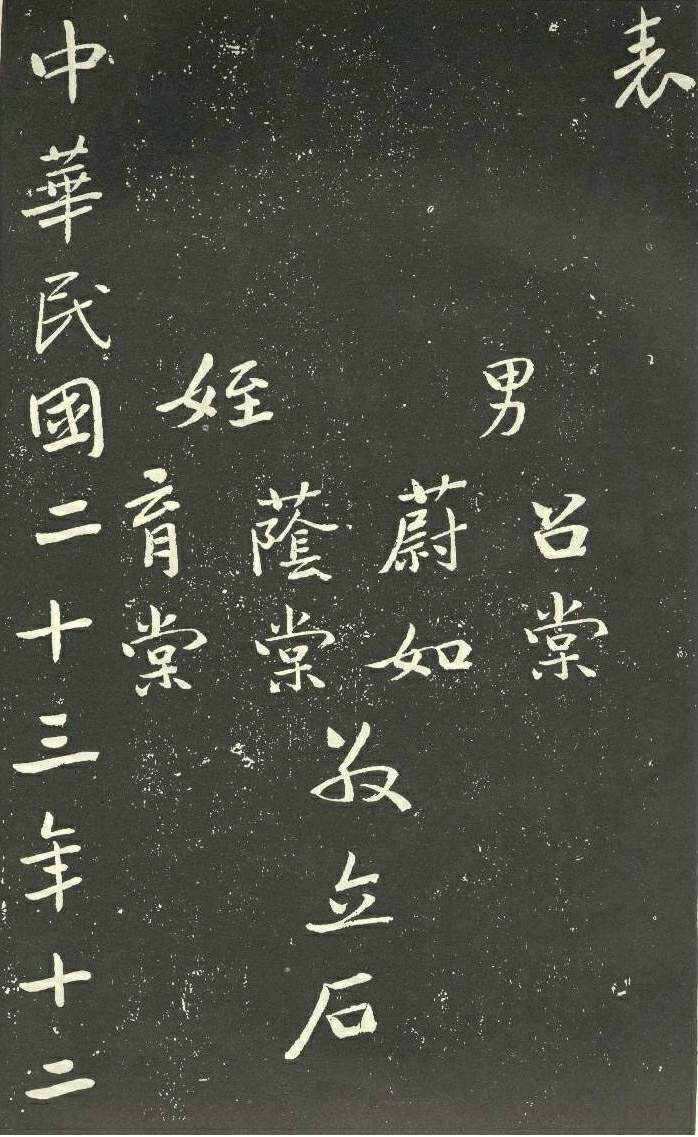 表
男
召棠
蔚如
姪
蔭棠
育棠
敬立石
中華民國二十三年十二